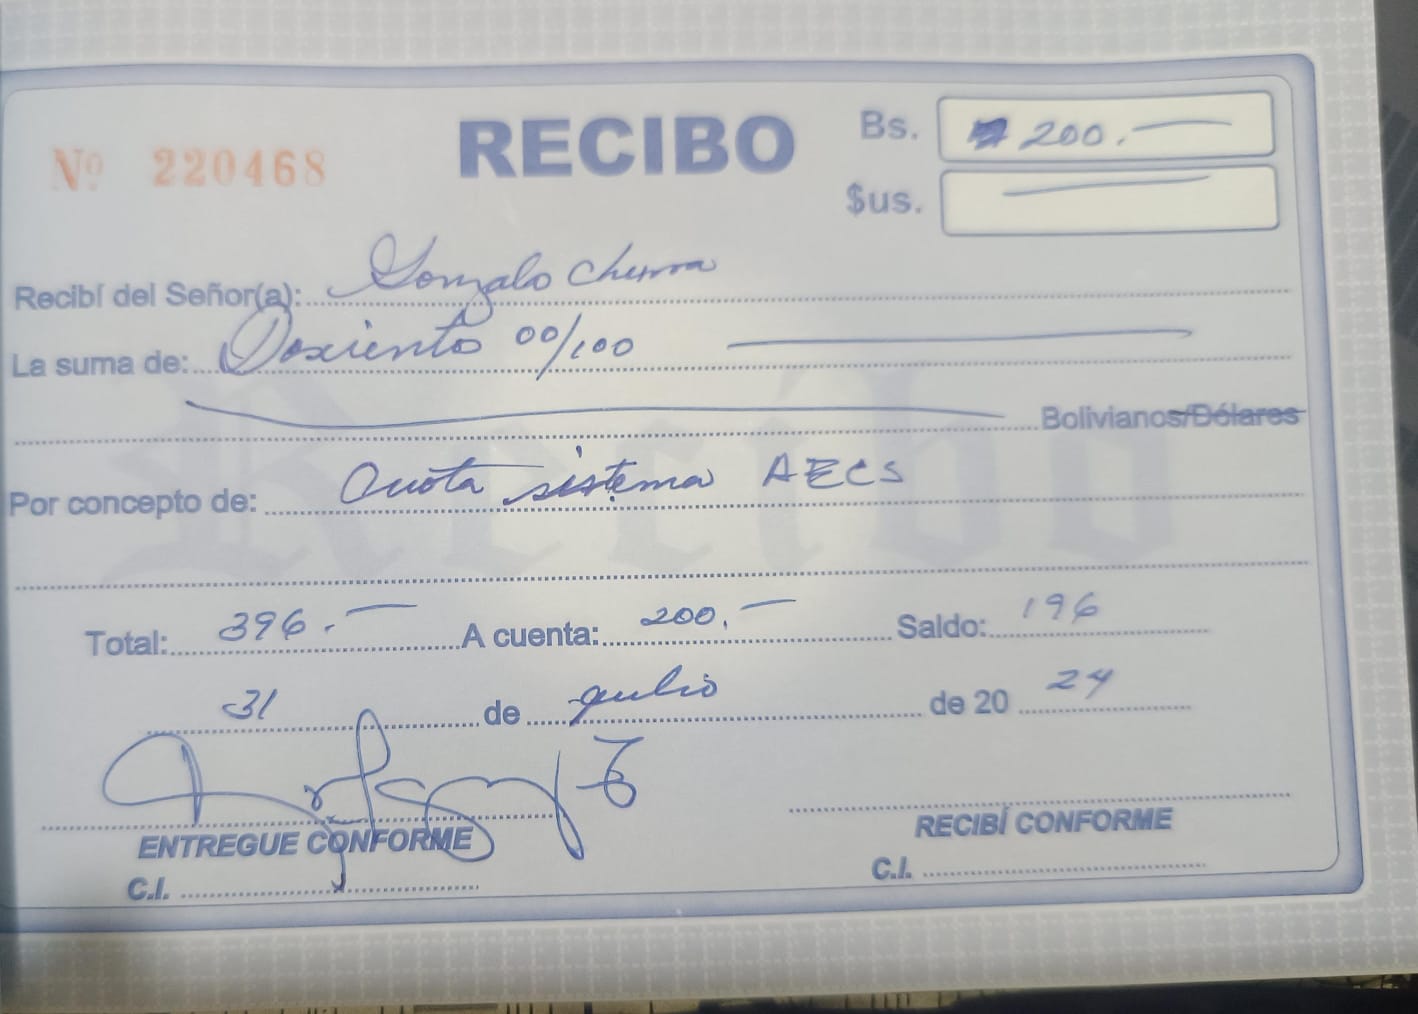 Nº 220468
RECIBO
Bs. 200.-
$us.
Recibí del Señor(a): Gonzalo
La suma de: Dosciento 00/100
Bolivianos/Dólares
Por concepto de: Cuota sistema AECS
Total: 396.- A cuenta: 200.- Saldo: 196
31 de julio de 20 24
ENTREGUE CONFORME
C.I.
RECIBÍ CONFORME
C.I.